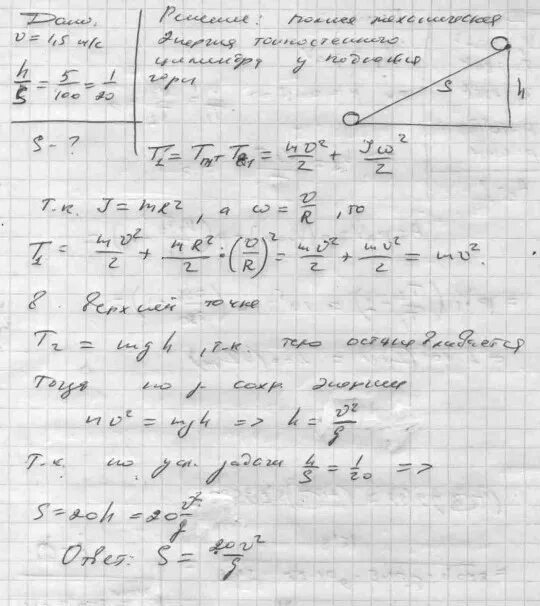 Дано:
υ = 1,5 м/с
h/S = 5/100 = 1/20
S - ?
Решение: полная механическая
энергия тонкостенного
цилиндра у подножия
горы
S
h
T₁ = Tₘ + T₁ = mυ²/2 + Jω²/2
т.к. J = mR², а ω = υ/R, то
T₁ = mυ²/2 + mR²/2 · (υ/R)² = mυ²/2 + mυ²/2 = mυ².
в верхней точке
T₂ = mgh, т.к. тело останавливается
Тогда по з. сохр. энергии
mυ² = mgh => h = υ²/g
т.к. по усл. задачи h/S = 1/20 =>
S = 20h = 20 υ²/g
Ответ: S = 20υ²/g